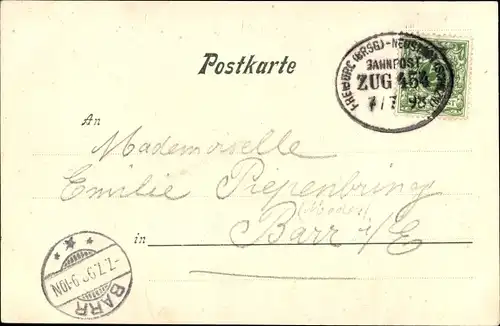 Postkarte
FREIBURG (BRSG)-NEUSTADT
BAHNPOST
ZUG 454
7/7 98
An
Mademoiselle
Emilie Piepenbring
(Modes)
in Barr i/E
BARR
7.7.98 9-10N